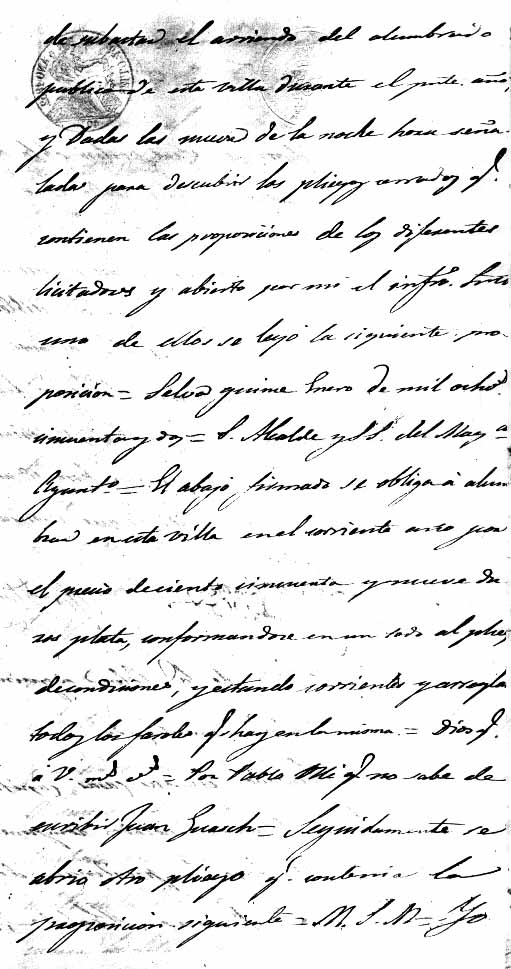 de subastar el arriendo del alumbrado
publico de esta villa durante el pnte. año,
y Dadas las nueve de la noche hora seña
lada para descubrir los pliegos cerrados q.
contienen las proposiciones de los diferentes
licitadores y abierto por mi el infro. Srio
uno de ellos se leyó la siguiente pro
posicion = Selva quince Enero de mil ochos.
cincuenta y dos = S. Alcalde y SS. del Mag.co
Ayunto. = El abajo firmado se obliga á alum
brar en esta villa en el corriente año por
el precio de ciento cincuenta y nueve du
ros plata, conformandose en un todo al plie
de condiciones, y estando corrientes y arregla
todos los faroles q. hay en la misma. = Dios g.
a V. ms. as. = Por Pablo q. no sabe de
escribir Juan Guasch = Seguidamente se
abrió otro pliego q. contenia la
proposicion siguiente = M. I. = Yo